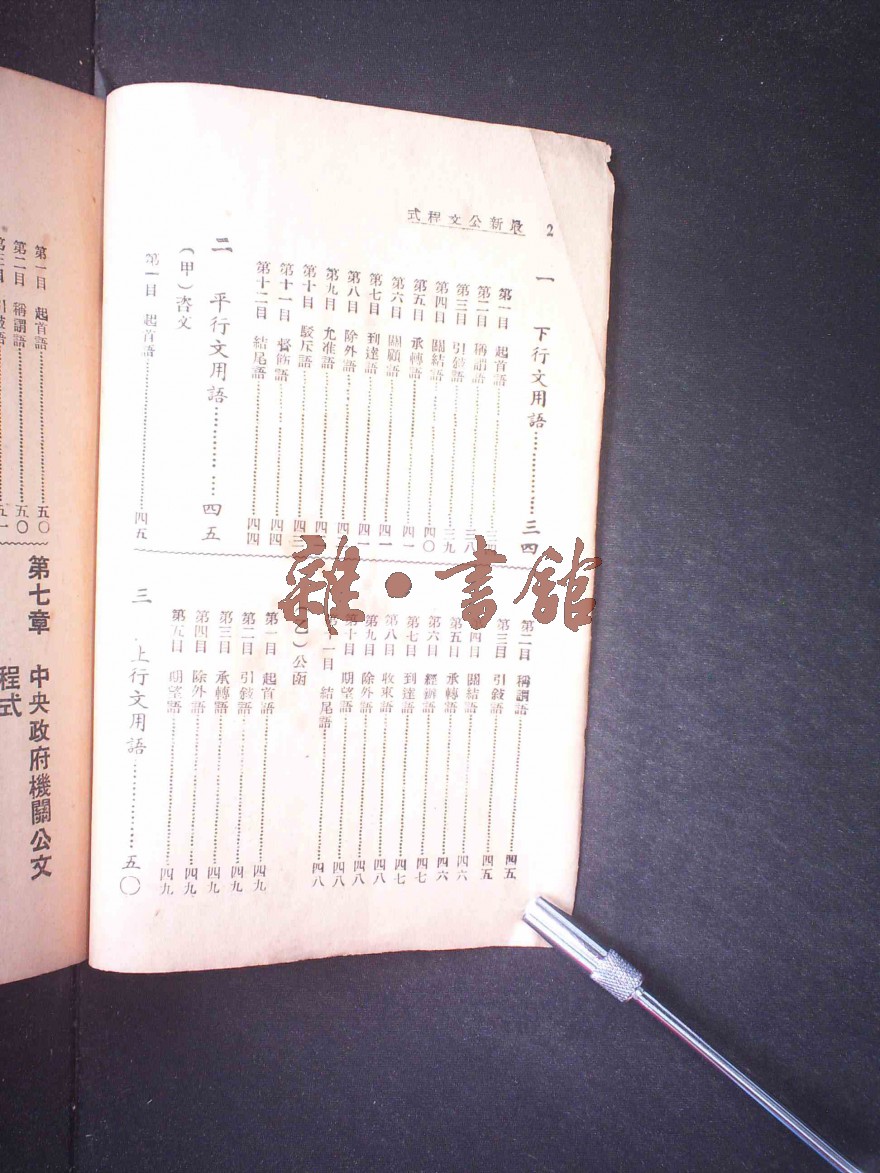 最新公文程式 2
一 下行文用語……三四
第一目 起首語……
第二目 稱謂語……三八
第三目 引敍語……三九
第四目 關結語……四〇
第五目 承轉語……四一
第六目 關顧語……四一
第七目 到達語……四一
第八目 除外語……四
第九目 允准語……四
第十目 駁斥語……四三
第十一目 督飭語……四四
第十二目 結尾語……四四
二 平行文用語……四五
(甲)咨文
第一目 起首語……四五
第二目 稱謂語……四五
第三目 引敍語……四五
第四目 關結語……四六
第五目 承轉語……四六
第六目 經辦語……四七
第七目 到達語……四七
第八目 收束語……四八
第九目 除外語……四八
第十目 期望語……四八
第十一目 結尾語……四八
(乙)公函
第一目 起首語……四九
第二目 引敍語……四九
第三目 承轉語……四九
第四目 除外語……四九
第五目 期望語……四九
三 上行文用語……五〇
第一目 起首語……五〇
第二目 稱謂語……五〇
第三目 引敍語……五一
第七章 中央政府機關公文
程式
雜·書館